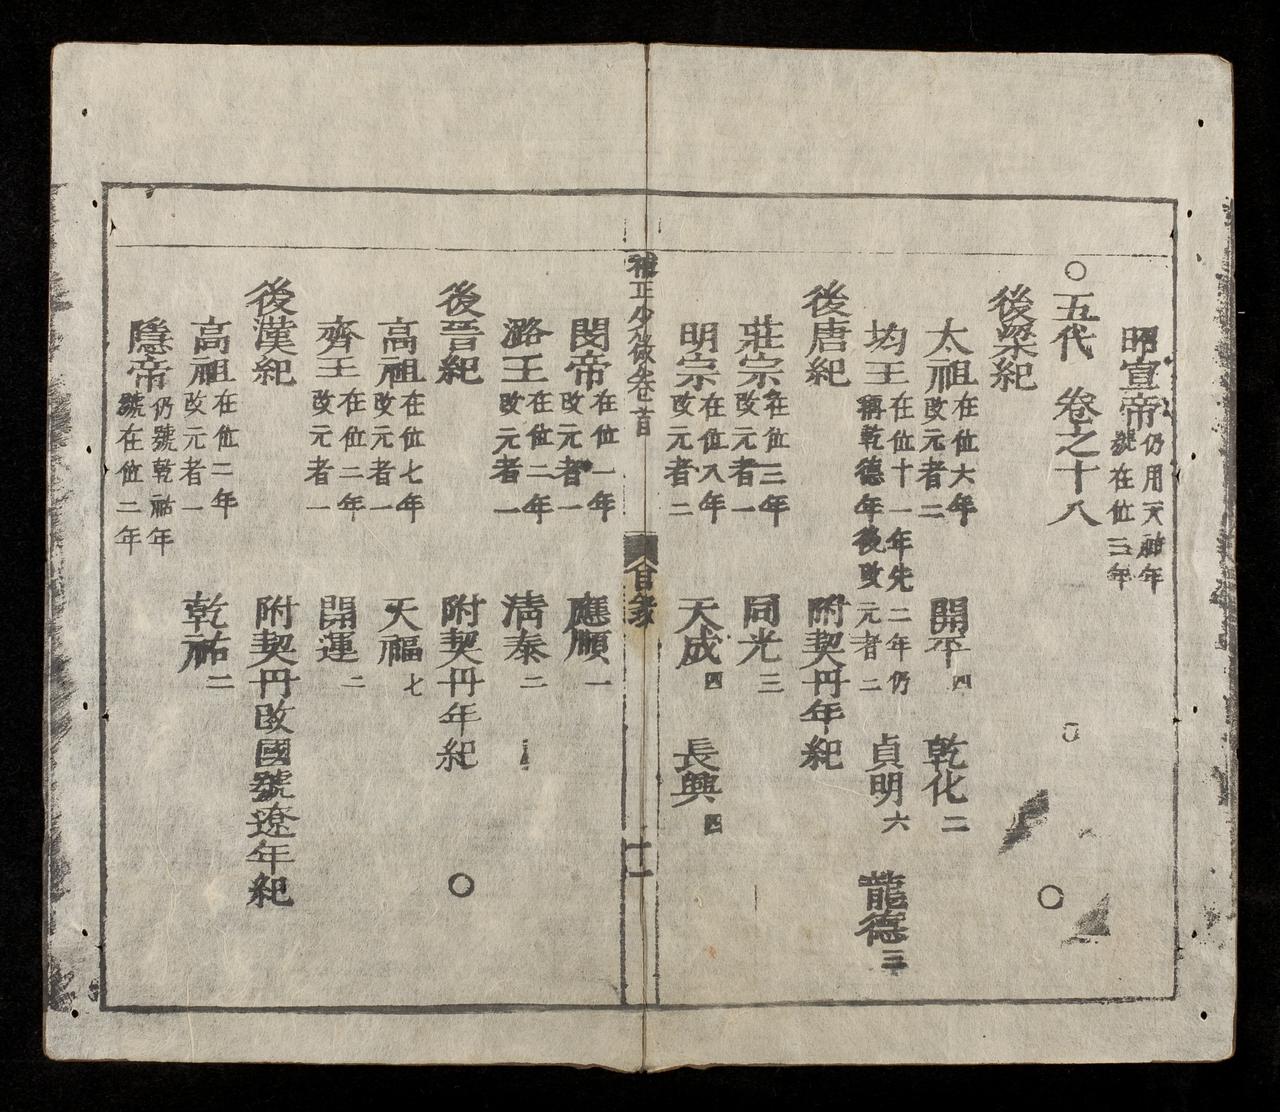 昭宣帝 仍用天祐年號在位三年
〇五代 卷之十八
後梁紀
太祖 在位六年改元者二 開平四 乾化二
均王 在位十一年先二年仍稱乾德年後改元者二 貞明六 龍德三
後唐紀 附契丹年紀
莊宗 在位三年改元者一 同光三
明宗 在位八年改元者二 天成四 長興四
補正少微卷首 目錄 十一
閔帝 在位一年改元者一 應順一
潞王 在位二年改元者一 淸泰二
後晉紀 附契丹年紀 〇
高祖 在位七年改元者一 天福七
齊王 在位二年改元者一 開運二
後漢紀 附契丹改國號遼年紀
高祖 在位二年改元者一 乾祐二
隱帝 仍號乾祐年號在位二年